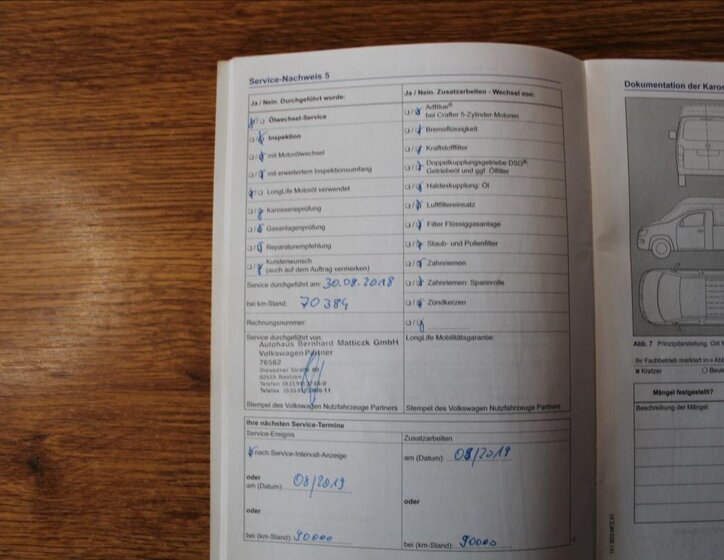 Service-Nachweis 5
Ja / Nein. Durchgeführt wurde:
Ölwechsel-Service
Inspektion
mit Motorölwechsel
mit erweitertem Inspektionsumfang
LongLife Motoröl verwendet
Karosserieprüfung
Gasanlagenprüfung
Reparaturempfehlung
Kundenwunsch
(auch auf dem Auftrag vermerken)
Service durchgeführt am: 30.08.2018
bei km-Stand: 70384
Rechnungsnummer:
Service durchgeführt von:
Autohaus Bernhard Matticzk GmbH
Volkswagen Partner
76562
Dresdener Straße 80
02625 Bautzen
Telefon
Telefax
Stempel des Volkswagen Nutzfahrzeuge Partners
Ja / Nein. Zusatzarbeiten - Wechsel von:
AdBlue®
bei Crafter 5-Zylinder-Motoren
Bremsflüssigkeit
Kraftstofffilter
Doppelkupplungsgetriebe DSG®:
Getriebeöl und ggf. Ölfilter
Haldexkupplung: Öl
Luftfiltereinsatz
Filter Flüssiggasanlage
Staub- und Pollenfilter
Zahnriemen
Zahnriemen: Spannrolle
Zündkerzen
LongLife Mobilitätsgarantie:
Stempel des Volkswagen Nutzfahrzeuge Partners
Ihre nächsten Service-Termine
Service-Ereignis
nach Service-Intervall-Anzeige
oder
am (Datum): 08/2019
oder
bei (km-Stand): 90000
Zusatzarbeiten
am (Datum): 08/2019
oder
bei (km-Stand): 90000
Dokumentation der Karos
Abb. 7 Prinzipdarstellung. Gilt f
Ihr Fachbetrieb markiert in
Kratzer
Beule
Mängel festgestellt?
Beschreibung der Mängel